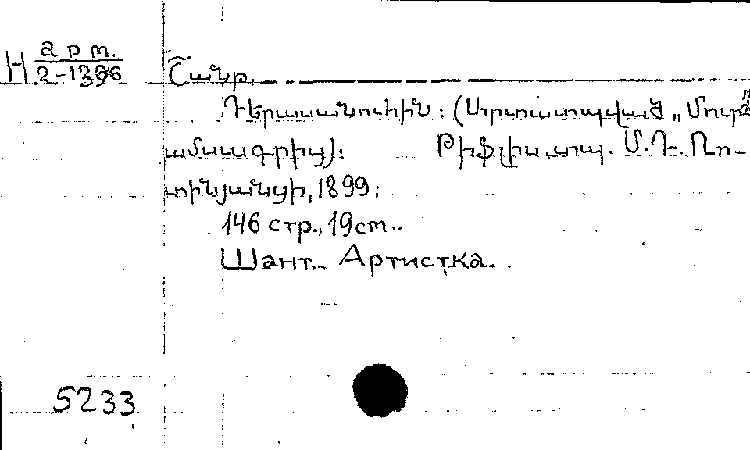 арт.
H 2-1396
Շանթ.
Դերասանուհին: (Արտատպված „Մուրճ"
ամսագրից): Թիֆլիս, տպ. Մ.Դ. Ռո-
տինյանցի, 1899:
146 стр., 19cm..
Шант. Артистка.
5233